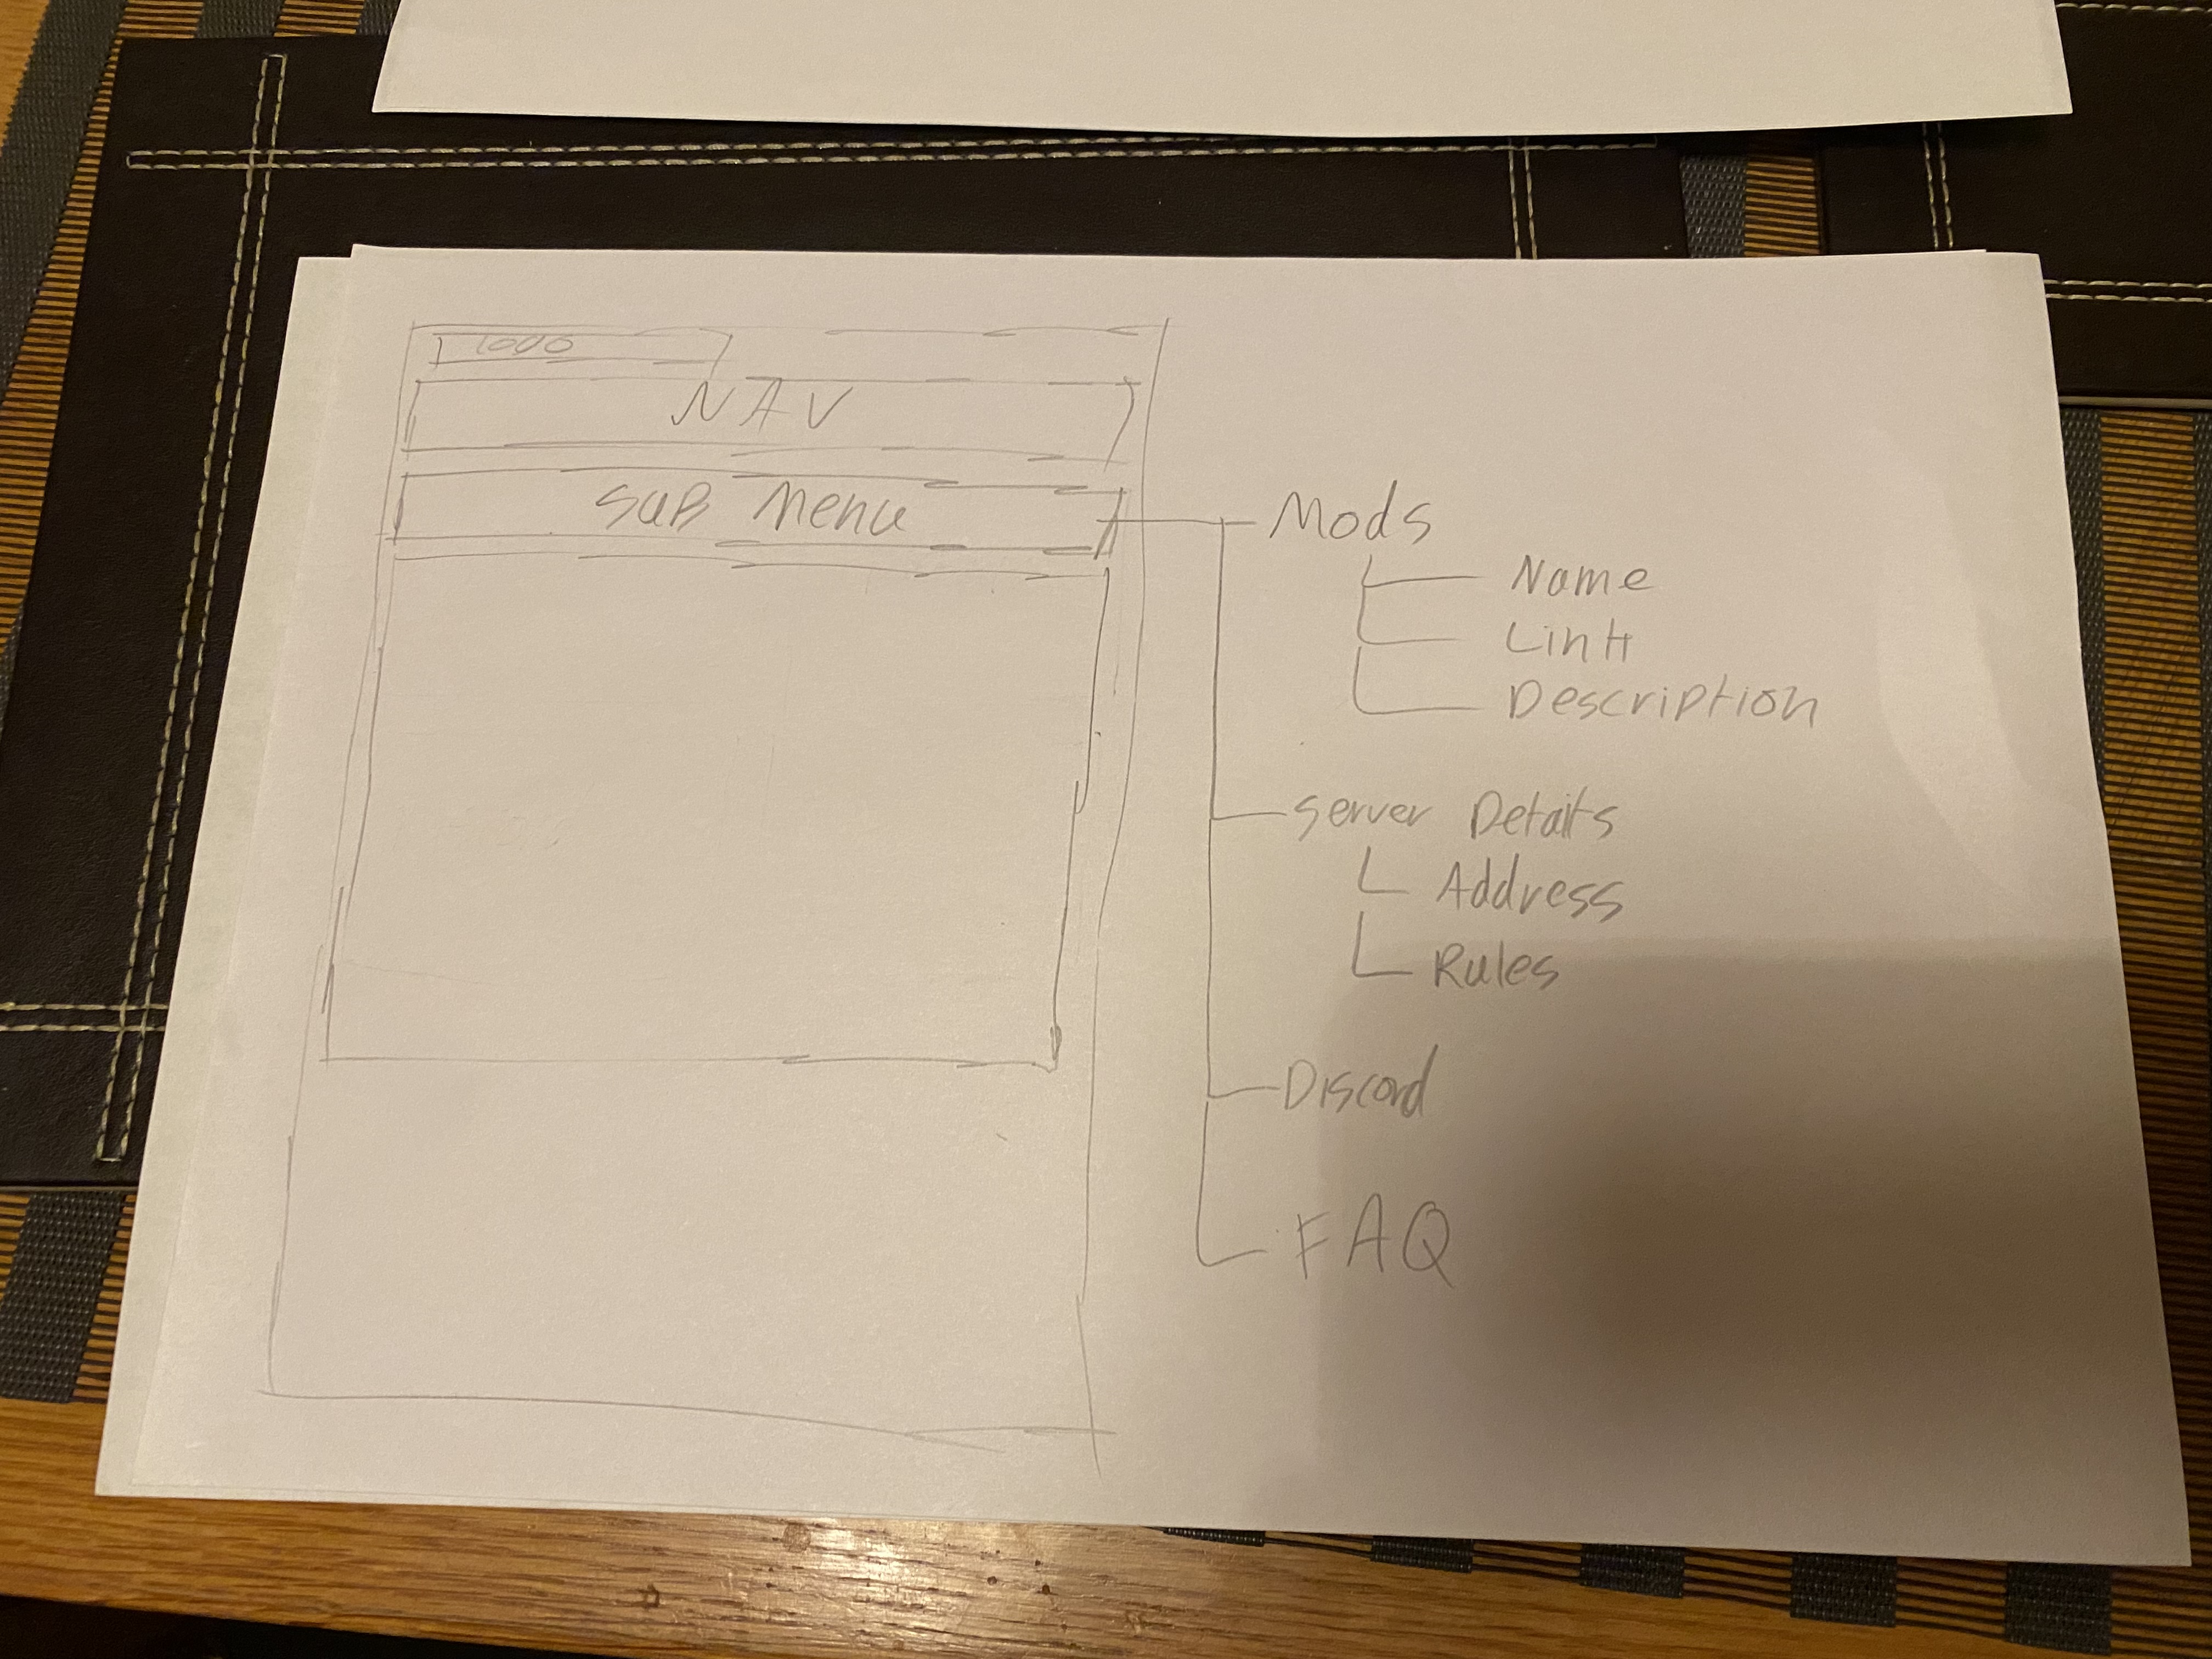 Logo
NAV
SUB Menu
Mods
Name
Link
Description
Server Details
Address
Rules
Discord
FAQ